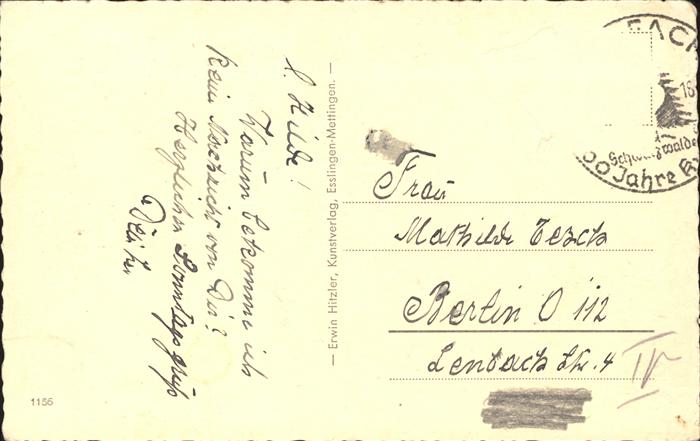 l. Hilde!
Warum bekomme ich
kein Nachricht von Dir?
Herzlichen Sonntagsgruß
— Erwin Hitzler, Kunstverlag, Esslingen-Mettingen. —
Frau
Mathilde Tesch
Berlin O 112
Lenbach Str. 4
IV
1156
Schwarzwalde
00 Jahre